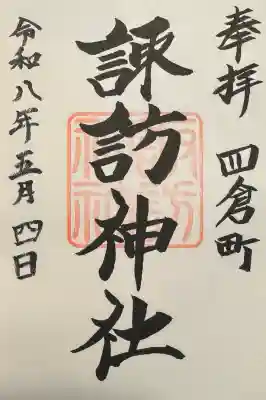 奉拝 四倉町
諏訪神社
令和八年五月四日